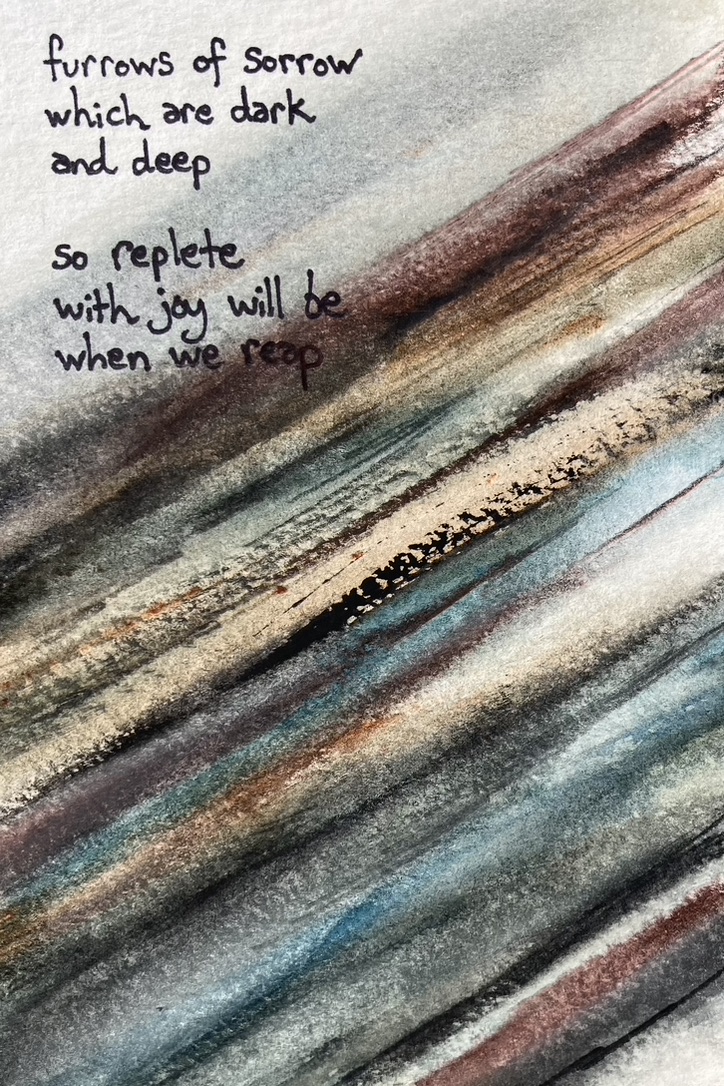 furrows of sorrow
which are dark
and deep
so replete
with joy will be
when we reap